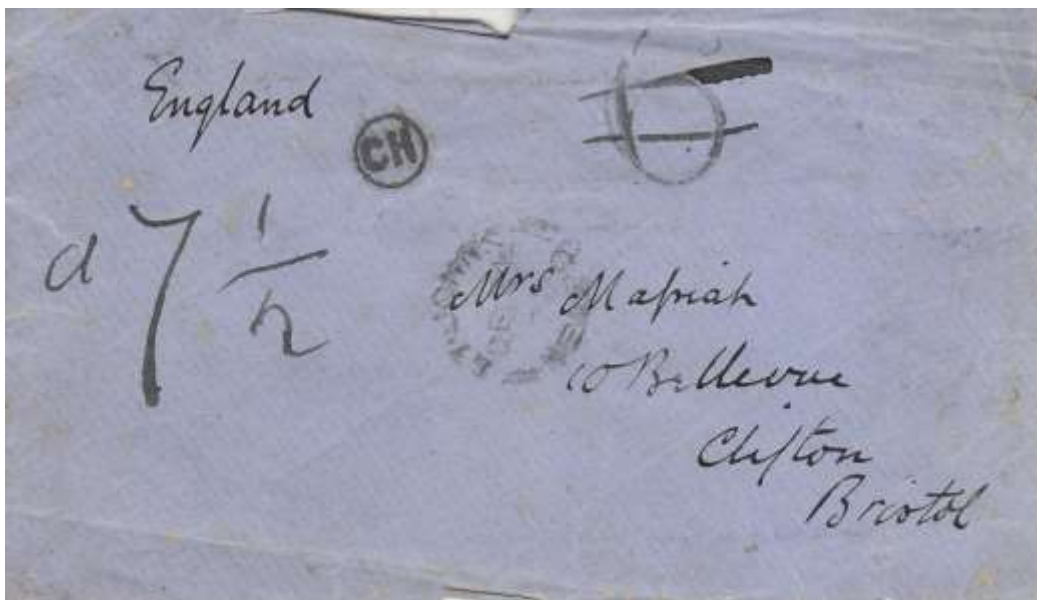 England
CH
d 7 1/2
Mrs
10 Bellevue
Clifton
Bristol